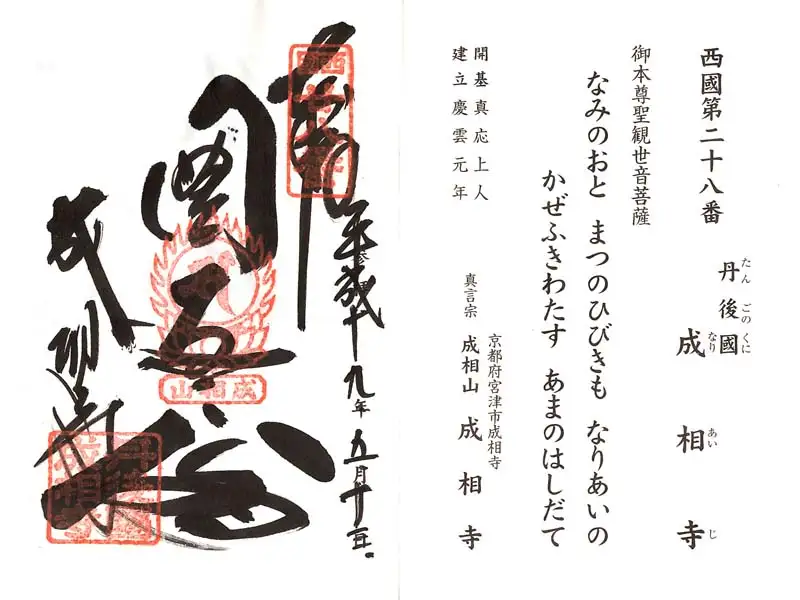 西國第二十八番
丹後國 成相寺
たんごのくに なりあいじ
御本尊聖観世音菩薩
なみのおと まつのひびきも なりあいの
かぜふきわたす あまのはしだて
開基真応上人
建立慶雲元年
京都府宮津市成相寺
真言宗 成相山 成相寺
平成十九年五月
奉拝
成相山
成相寺